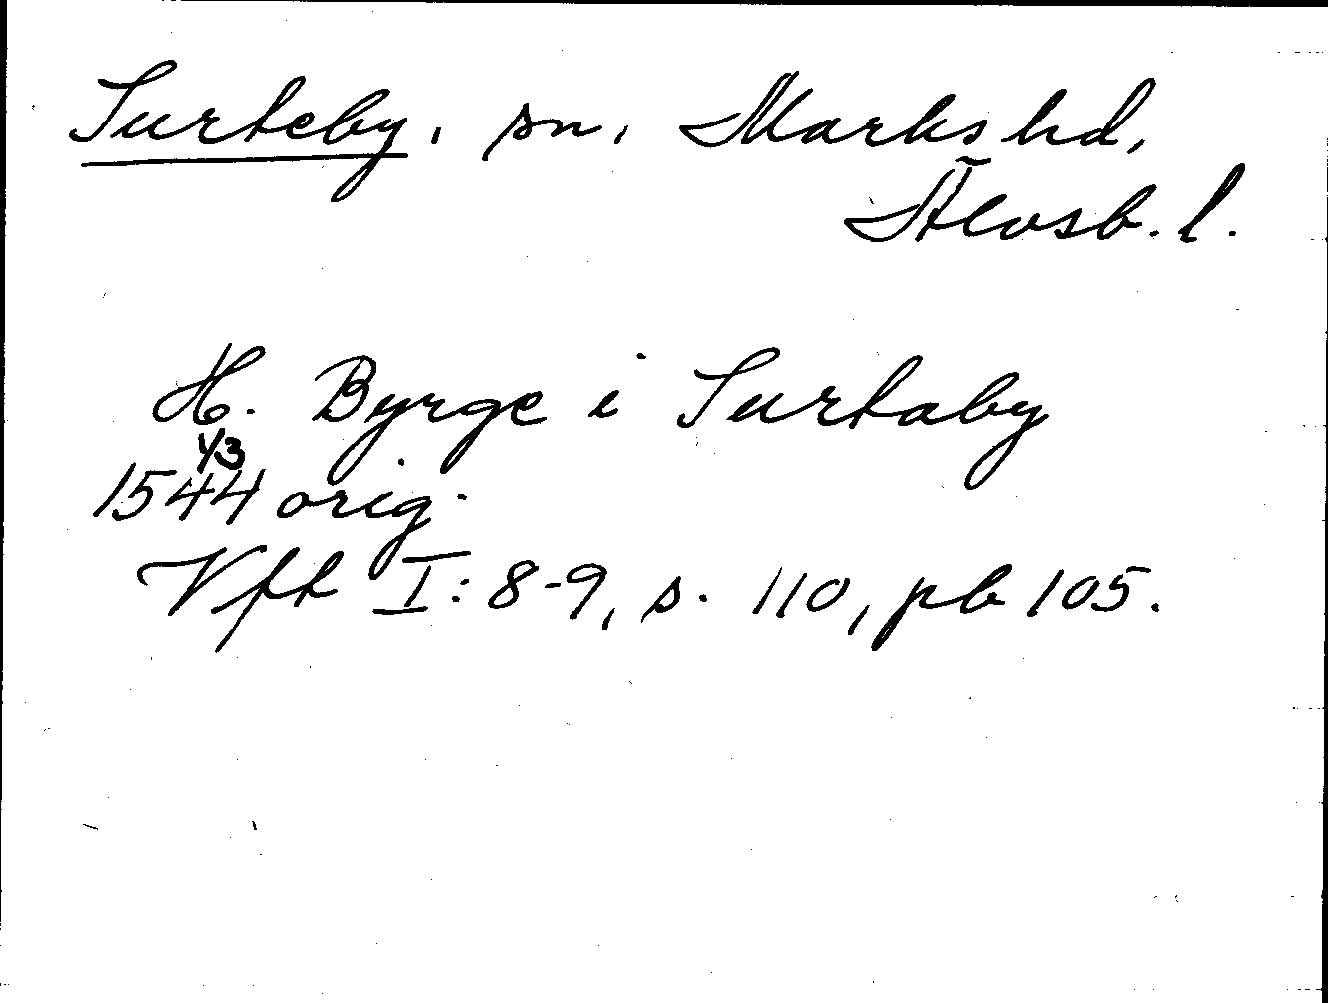 Surteby, sn, Marks hd,
Älvsb. l.
H. Byrge i Surtaby
1/3
1544 orig.
Vft I: 8-9, s. 110, pb 105.